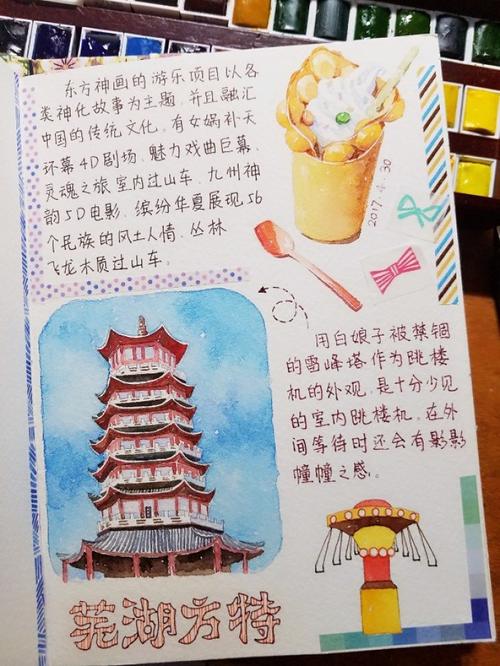 东方神画的游乐项目以各
类神化故事为主题,并且融汇
中国的传统文化。有女娲补天
环幕4D剧场、魅力戏曲巨幕、
灵魂之旅室内过山车、九州神
韵5D电影、缤纷华夏展现56
个民族的风土人情、丛林
飞龙木质过山车。
2017.4.30
用白娘子被禁锢
的雪峰塔作为跳楼
机的外观,是十分少见
的室内跳楼机。在外
间等待时还会有影影
幢幢之感。
芜湖方特